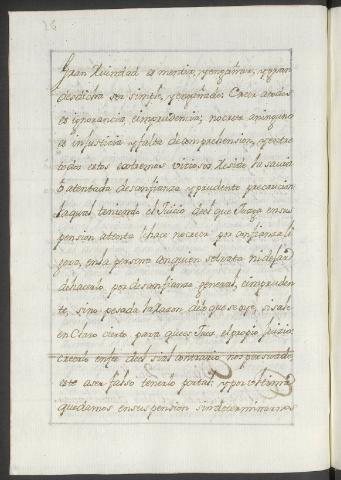 Gran Ruindad es mentir, y engañar, y gran
desdicha ser simple, y engañado. Creer a todos
es ignorancia, e imprudencia; no creer a ninguno
es injusticia y falta de comprehension, y entre
todos estos extremos viciosos Reside la savia
o atentada desconfianza y prudente precaucion
la qual teniendo el Juicio del que Juzga en sus
pension atenta le hace no creer por confianza li
gera, en la persona con quien se trata ni dejar
de hacerlo por desconfianza general, e impruden
te, sino pesada la Razon de lo que se oye, si sale
en Claro cierto para que es Juez el propio juicio
creerlo en fee del si al contrario nos persuade
este a ser falso tenerlo por tal: y por ultimo
quedarnos en suspension sin determinarnos